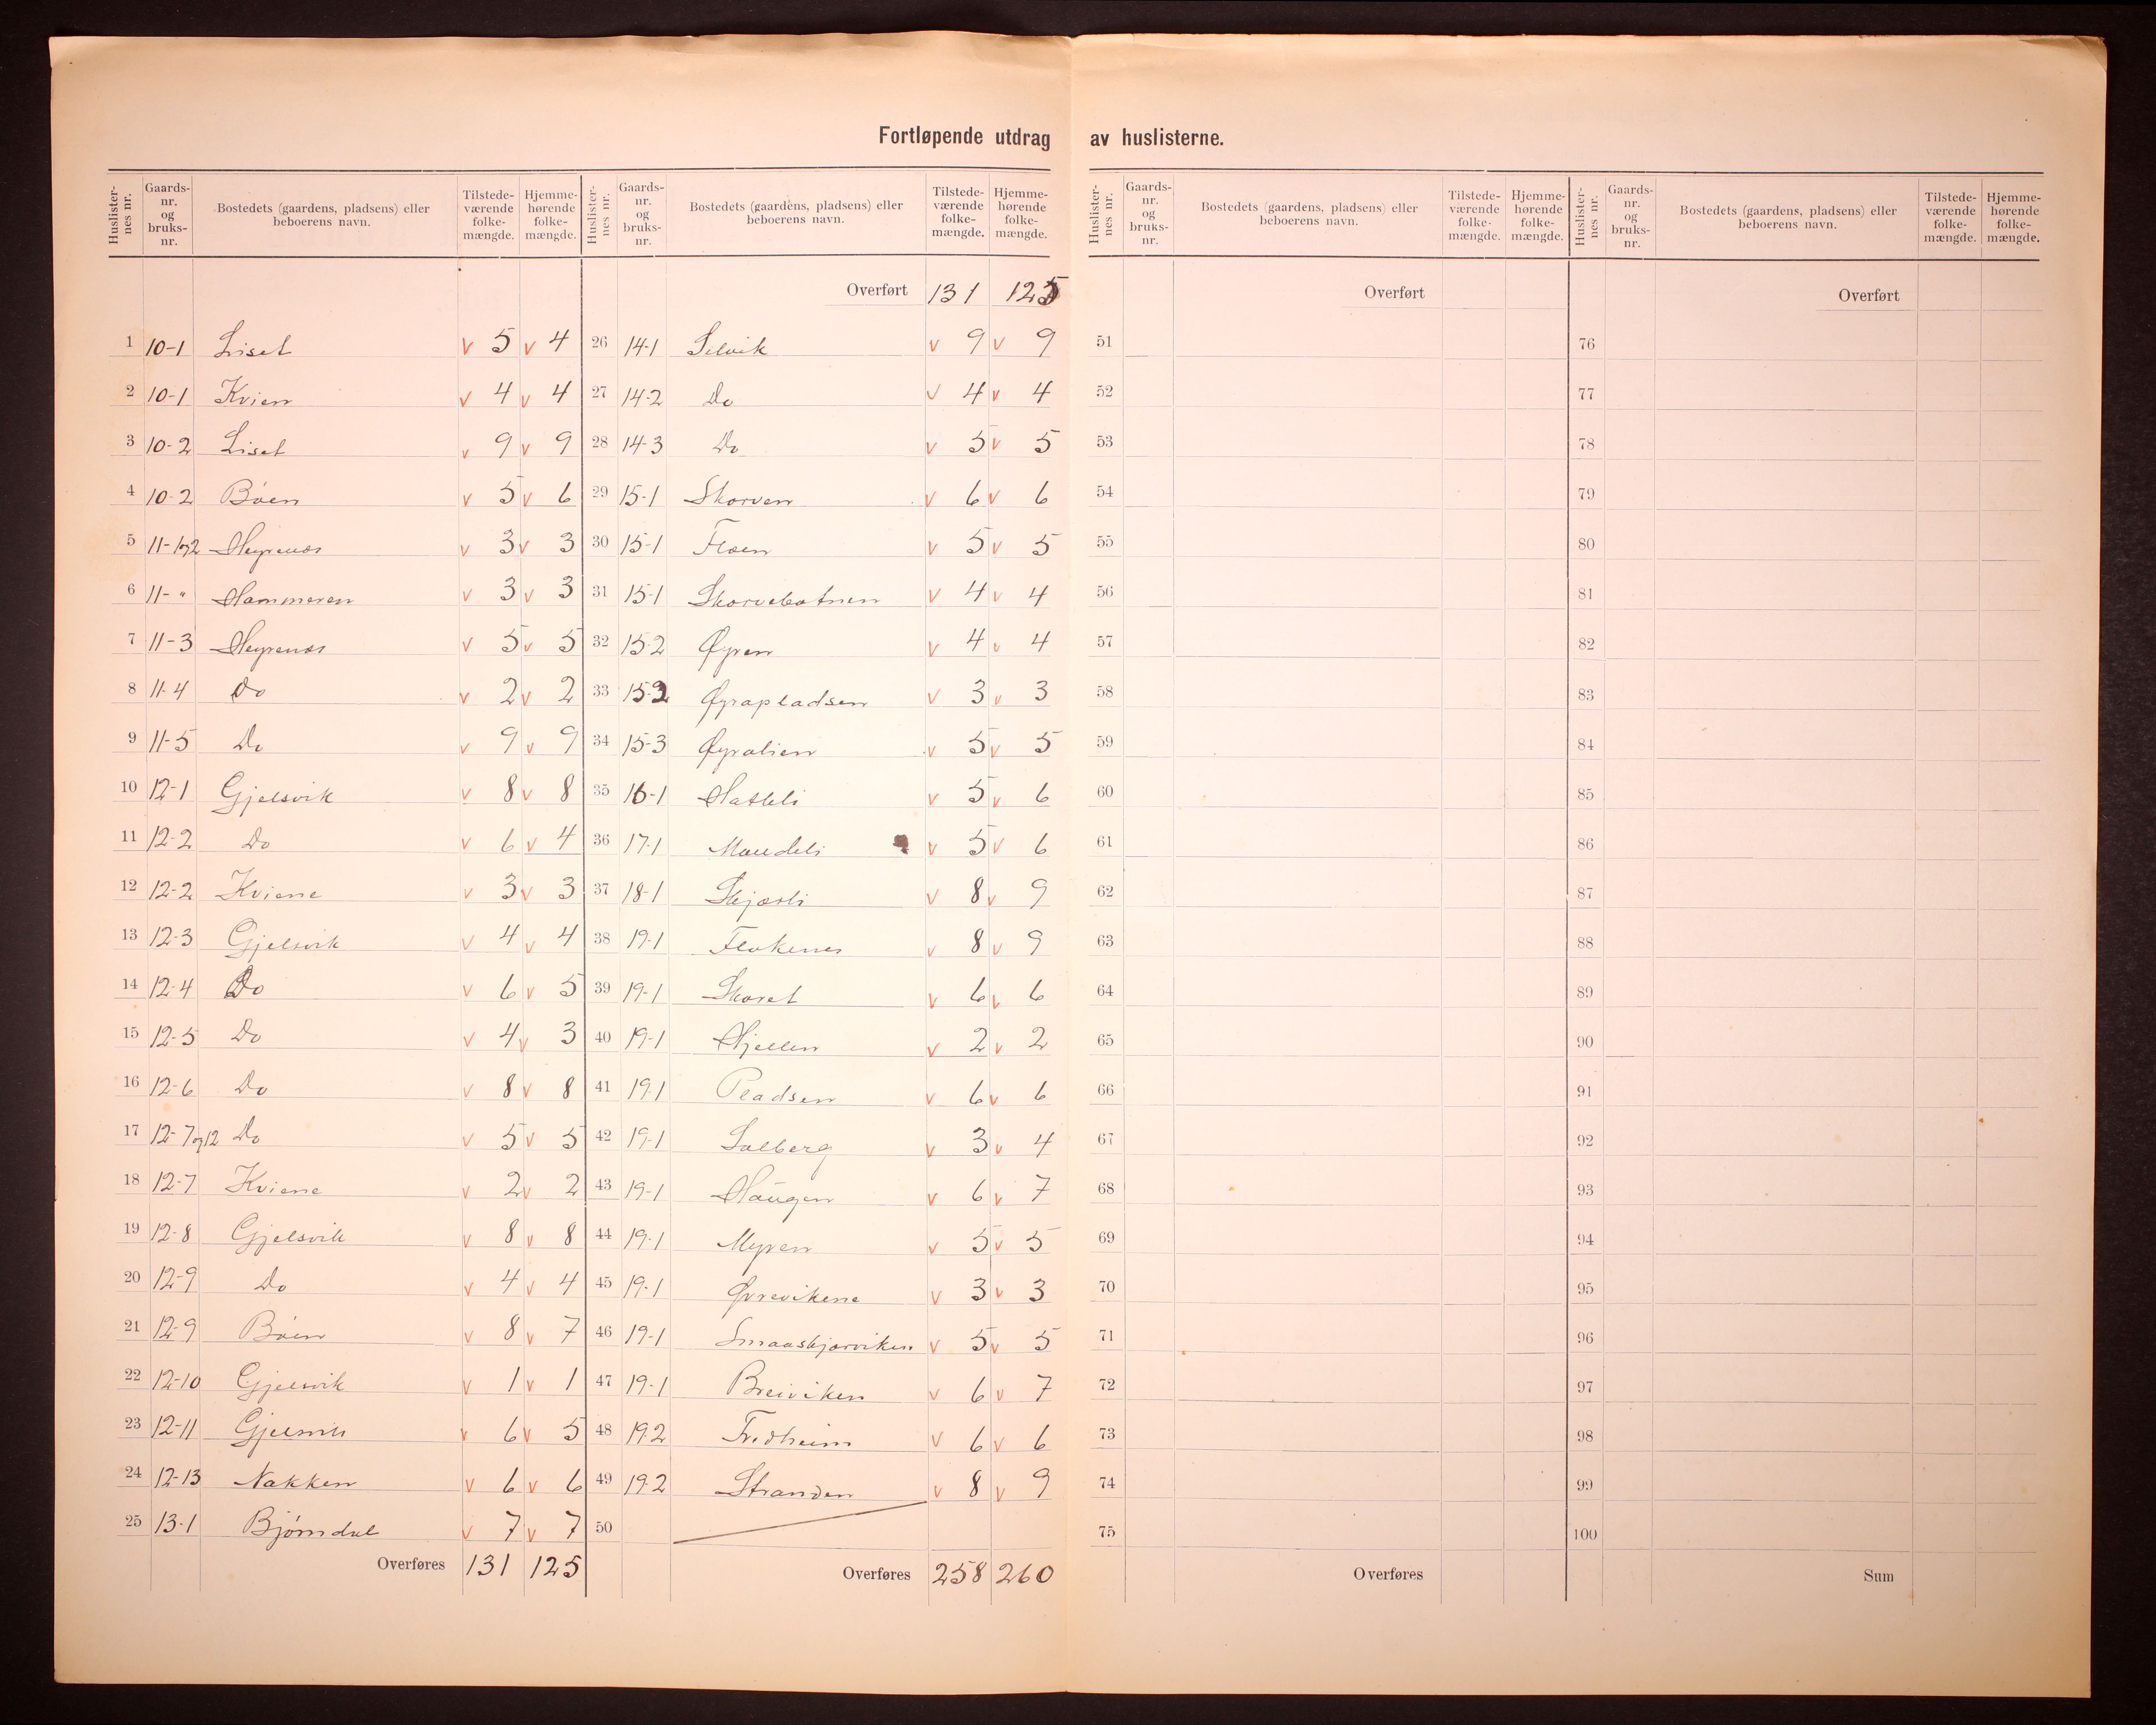 Fortløpende utdrag av huslisterne.
Huslister-nes nr. Gaards-nr. og bruks-nr. Bostedets (gaardens, pladsens) eller beboerens navn. Tilstede-værende folke-mængde. Hjemme-hørende folke-mængde.
1 10-1 Liset v 5 v 4
2 10-1 Kvien v 4 v 4
3 10-2 Liset v 9 v 9
4 10-2 Böen v 5 v 6
5 11-1og2 Heyrenæs v 3 v 3
6 11-" Hammeren v 3 v 3
7 11-3 Heyrenæs v 5 v 5
8 11-4 Do v 2 v 2
9 11-5 Do v 9 v 9
10 12-1 Gjelsvik v 8 v 8
11 12-2 Do v 6 v 4
12 12-2 Kviene v 3 v 3
13 12-3 Gjelsvik v 4 v 4
14 12-4 Do v 6 v 5
15 12-5 Do v 4 v 3
16 12-6 Do v 8 v 8
17 12-7og12 Do v 5 v 5
18 12-7 Kviene v 2 v 2
19 12-8 Gjelsvik v 8 v 8
20 12-9 Do v 4 v 4
21 12-9 Böen v 8 v 7
22 12-10 Gjelsvik v 1 v 1
23 12-11 Gjelsvik v 6 v 5
24 12-13 Nakken v 6 v 6
25 13-1 Bjørndal v 7 v 7
Overføres 131 125
Huslister-nes nr. Gaards-nr. og bruks-nr. Bostedets (gaardens, pladsens) eller beboerens navn. Tilstede-værende folke-mængde. Hjemme-hørende folke-mængde.
Overført 131 125
26 14-1 Selvik v 9 v 9
27 14-2 Do v 4 v 4
28 14-3 Do v 5 v 5
29 15-1 Skorven v 6 v 6
30 15-1 Floen v 5 v 5
31 15-1 Skorvebotnen v 4 v 4
32 15-2 Øyren v 4 v 4
33 15-2 Øyrapladsen v 3 v 3
34 15-3 Øyralien v 5 v 5
35 16-1 Hatleli v 5 v 6
36 17-1 Maudeli v 5 v 6
37 18-1 Skjærli v 8 v 9
38 19-1 Flokenes v 8 v 9
39 19-1 Skoret v 6 v 6
40 19-1 Hjellen v 2 v 2
41 19-1 Pladsen v 6 v 6
42 19-1 Solberg v 3 v 4
43 19-1 Haugen v 6 v 7
44 19-1 Myren v 5 v 5
45 19-1 Øvrevikene v 3 v 3
46 19-1 Smaaskjorviken v 5 v 5
47 19-1 Breiviken v 6 v 7
48 19-2 Fredheim v 6 v 6
49 19-2 Stranden v 8 v 9
50
Overføres 258 260
Huslister-nes nr. Gaards-nr. og bruks-nr. Bostedets (gaardens, pladsens) eller beboerens navn. Tilstede-værende folke-mængde. Hjemme-hørende folke-mængde.
Overført
51
52
53
54
55
56
57
58
59
60
61
62
63
64
65
66
67
68
69
70
71
72
73
74
75
Overføres
Huslister-nes nr. Gaards-nr. og bruks-nr. Bostedets (gaardens, pladsens) eller beboerens navn. Tilstede-værende folke-mængde. Hjemme-hørende folke-mængde.
Overført
76
77
78
79
80
81
82
83
84
85
86
87
88
89
90
91
92
93
94
95
96
97
98
99
100
Sum